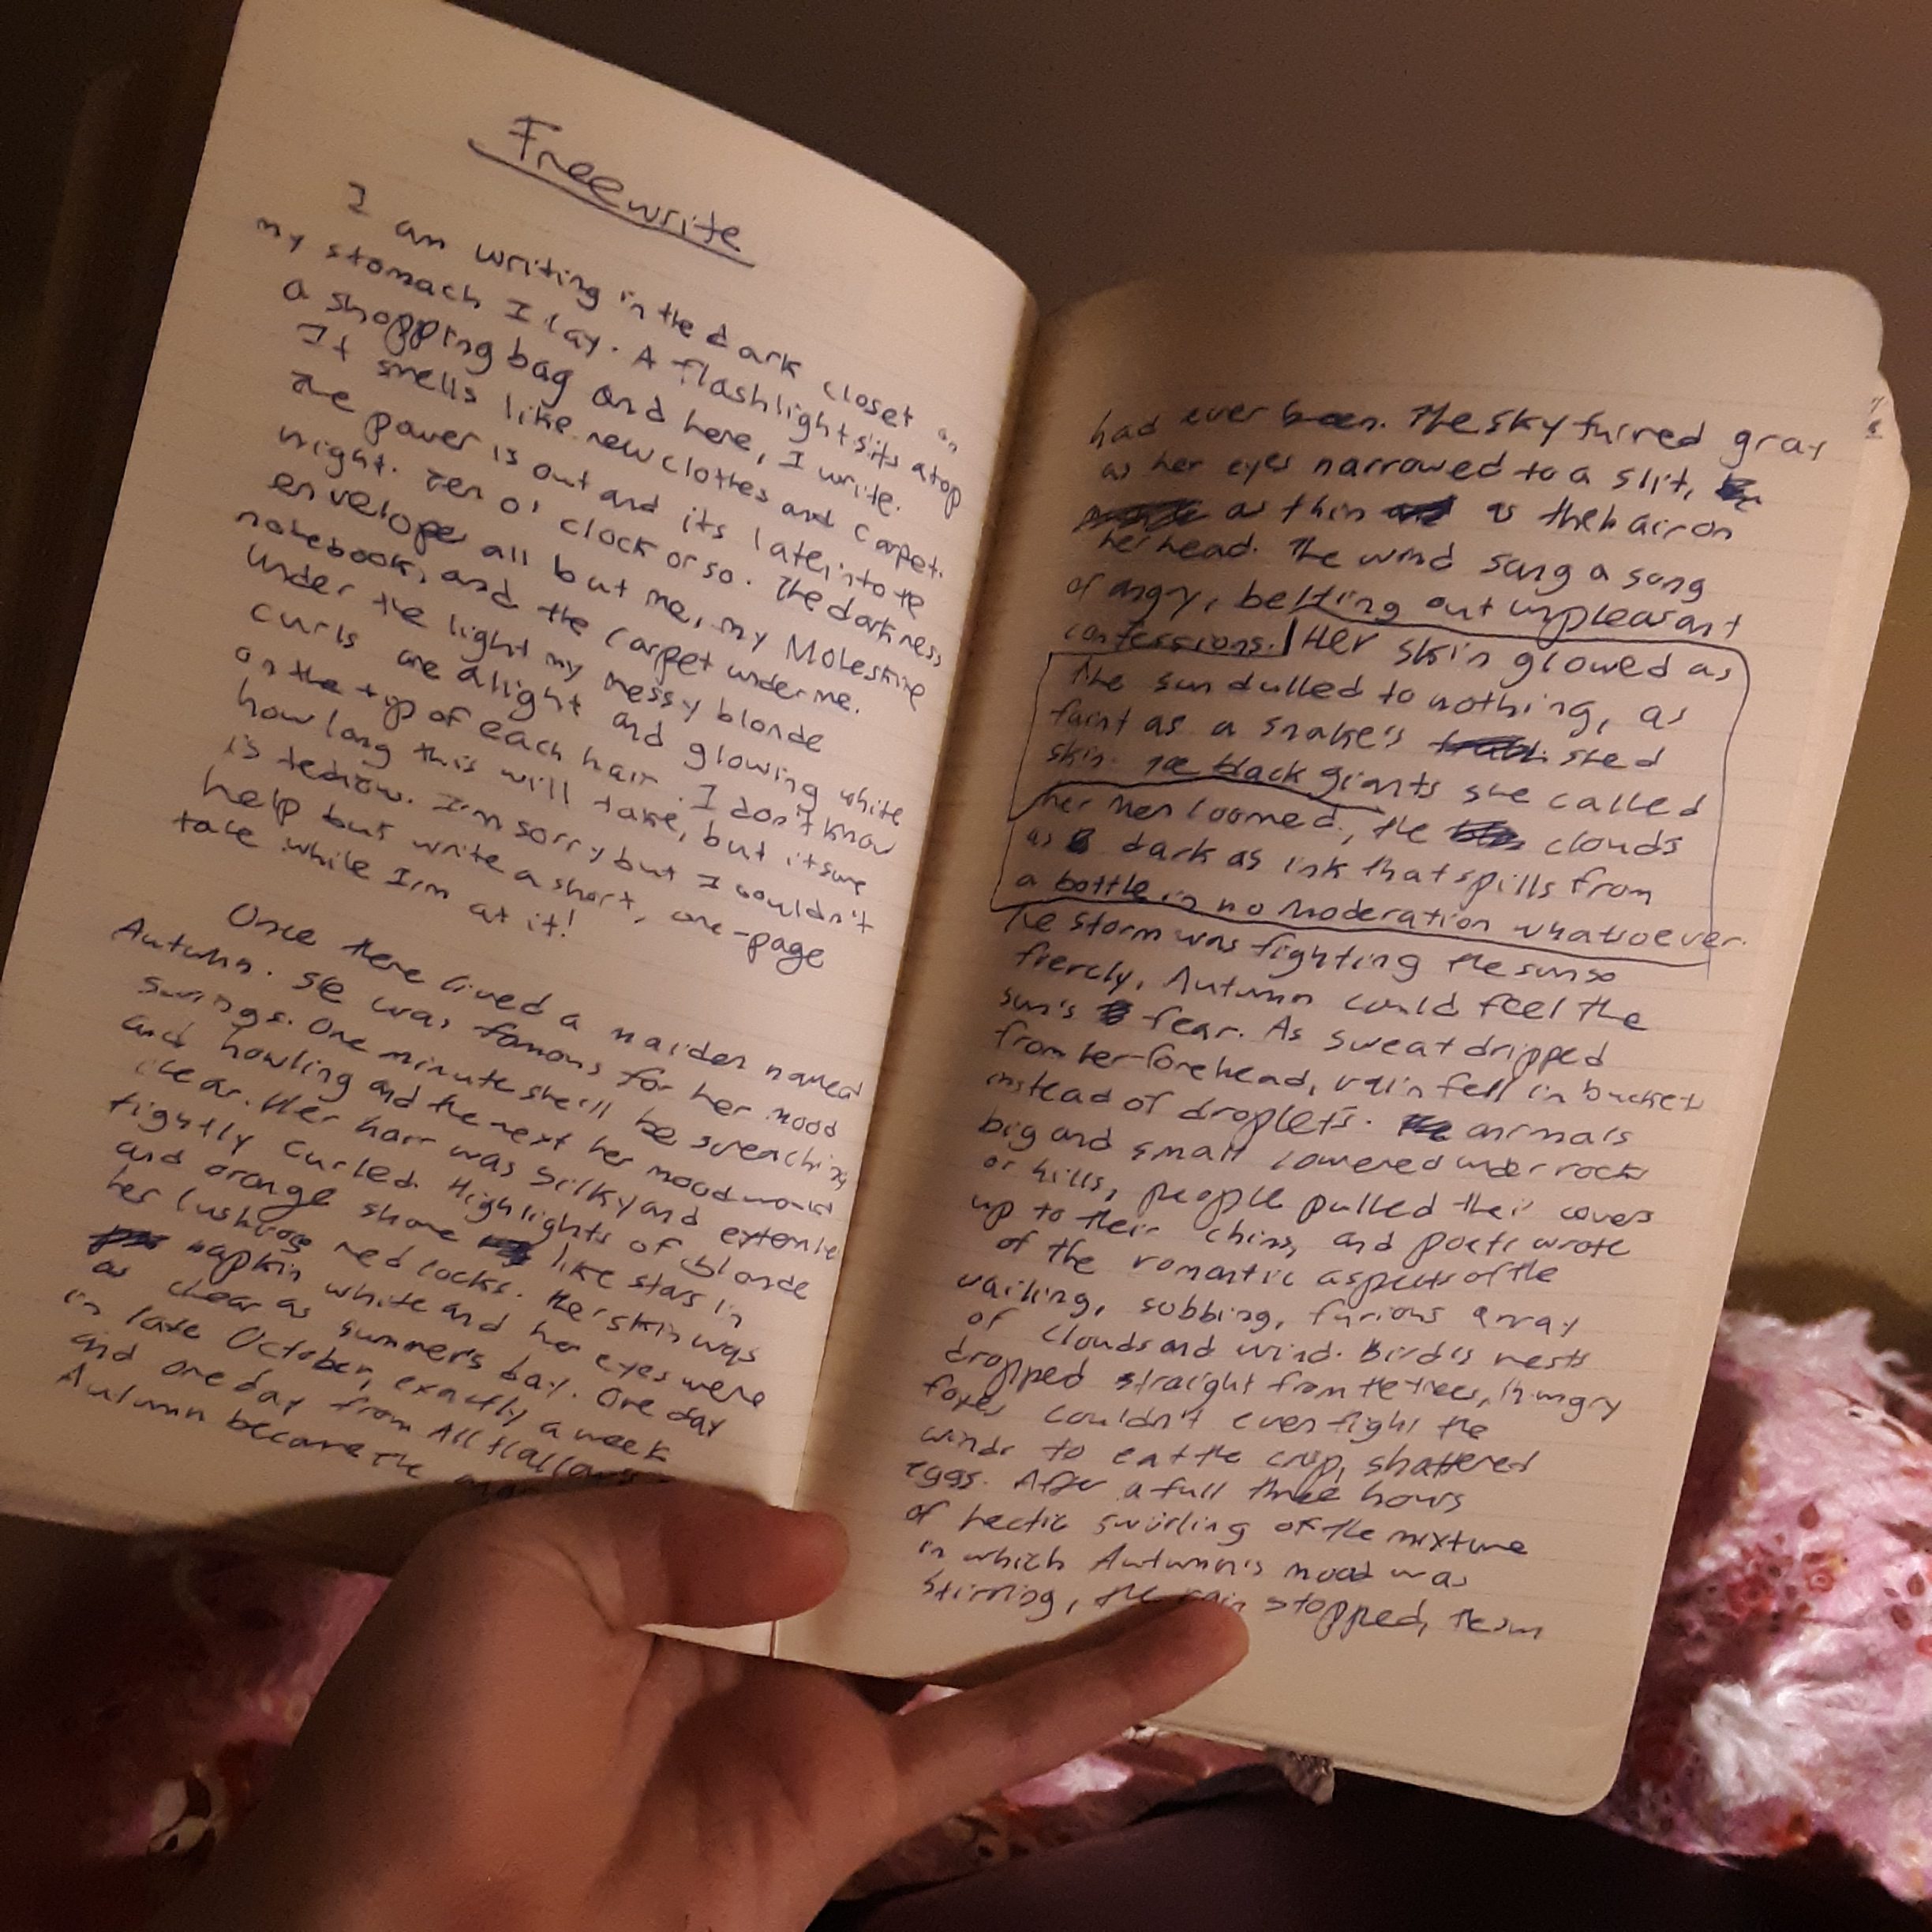 Freewrite
I am writing in the dark closet on
my stomach I lay. A flashlight sits atop
a shopping bag and here, I write.
It smells like new clothes and carpet.
The power is out and its late into the
night. Ten o' clock or so. The darkness
envelopes all but me, my Moleskine
notebook, and the carpet under me.
Under the light my messy blonde
curls are alight and glowing white
on the top of each hair. I don't know
how long this will take, but it sure
is tedious. I'm sorry but I couldn't
help but write a short, one-page
tale while I'm at it!
Once there lived a maiden named
Autumn. She was famous for her mood
swings. One minute she'll be screaching
and howling and the next her mood would
clear. Her hair was silky and
tightly curled. Highlights of blonde
and orange shone like stars in
her red locks. Her skin was
napkin white and her eyes were
as clear as summer's bay. One day
in late October, exactly a week
and one day from All Hallows
Autumn became the
had ever been. The sky turned gray
as her eyes narrowed to a slit,
as thin as the hair on
her head. The wind sang a song
of angry, belting out unpleasant
confessions. Her skin glowed as
the sun dulled to nothing, as
faint as a snake's shed
skin. The black giants she called
her men loomed, the clouds
as dark as ink that spills from
a bottle in no moderation whatsoever.
The storm was fighting the sun so
fiercly, Autumn could feel the
sun's fear. As sweat dripped
from her forehead, rain fell in buckets
instead of droplets. animals
big and small cowered under rocks
or hills, people pulled their covers
up to their chins, and poets wrote
of the romantic aspects of the
wailing, sobbing, furious array
of clouds and wind. Bird's nests
dropped straight from the trees, hungry
foxes couldn't even fight the
winds to eat the crisp, shattered
eggs. After a full three hours
of hectic swirling of the mixture
in which Autumn's mood was
stirring, the rain stopped, the sun